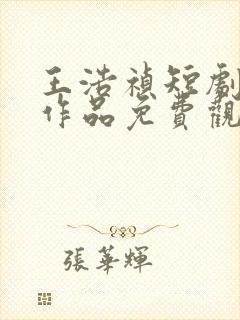 王浩禎短劇
作品免費觀
張華輝